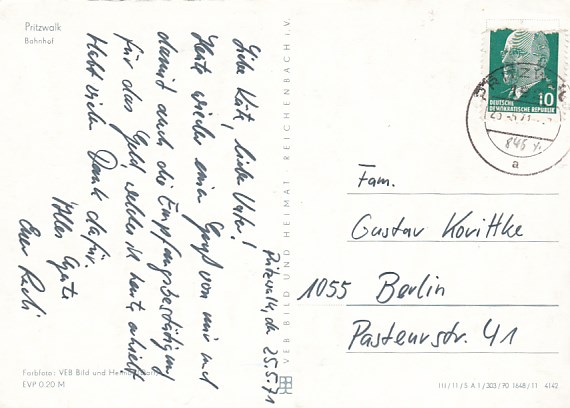 Pritzwalk
Bahnhof
Pritzwalk, den 25.5.71
Liebe Käte, lieber Vater!
Heute wieder einen Gruß von mir und
damit auch die Empfangsbestätigung
für das Geld, welches ich heute erhielt.
Habt vielen Dank dafür.
Alles Gute
Euer
Farbfoto: VEB Bild und Heimat
EVP 0.20 M
VEB BILD UND HEIMAT REICHENBACH i. V.
10
DEUTSCHE
DEMOKRATISCHE REPUBLIK
a
Fam.
Gustav Korittke
1055 Berlin
Pasteurstr. 41
III/11/5 A 1/303/70 1648/11 4142